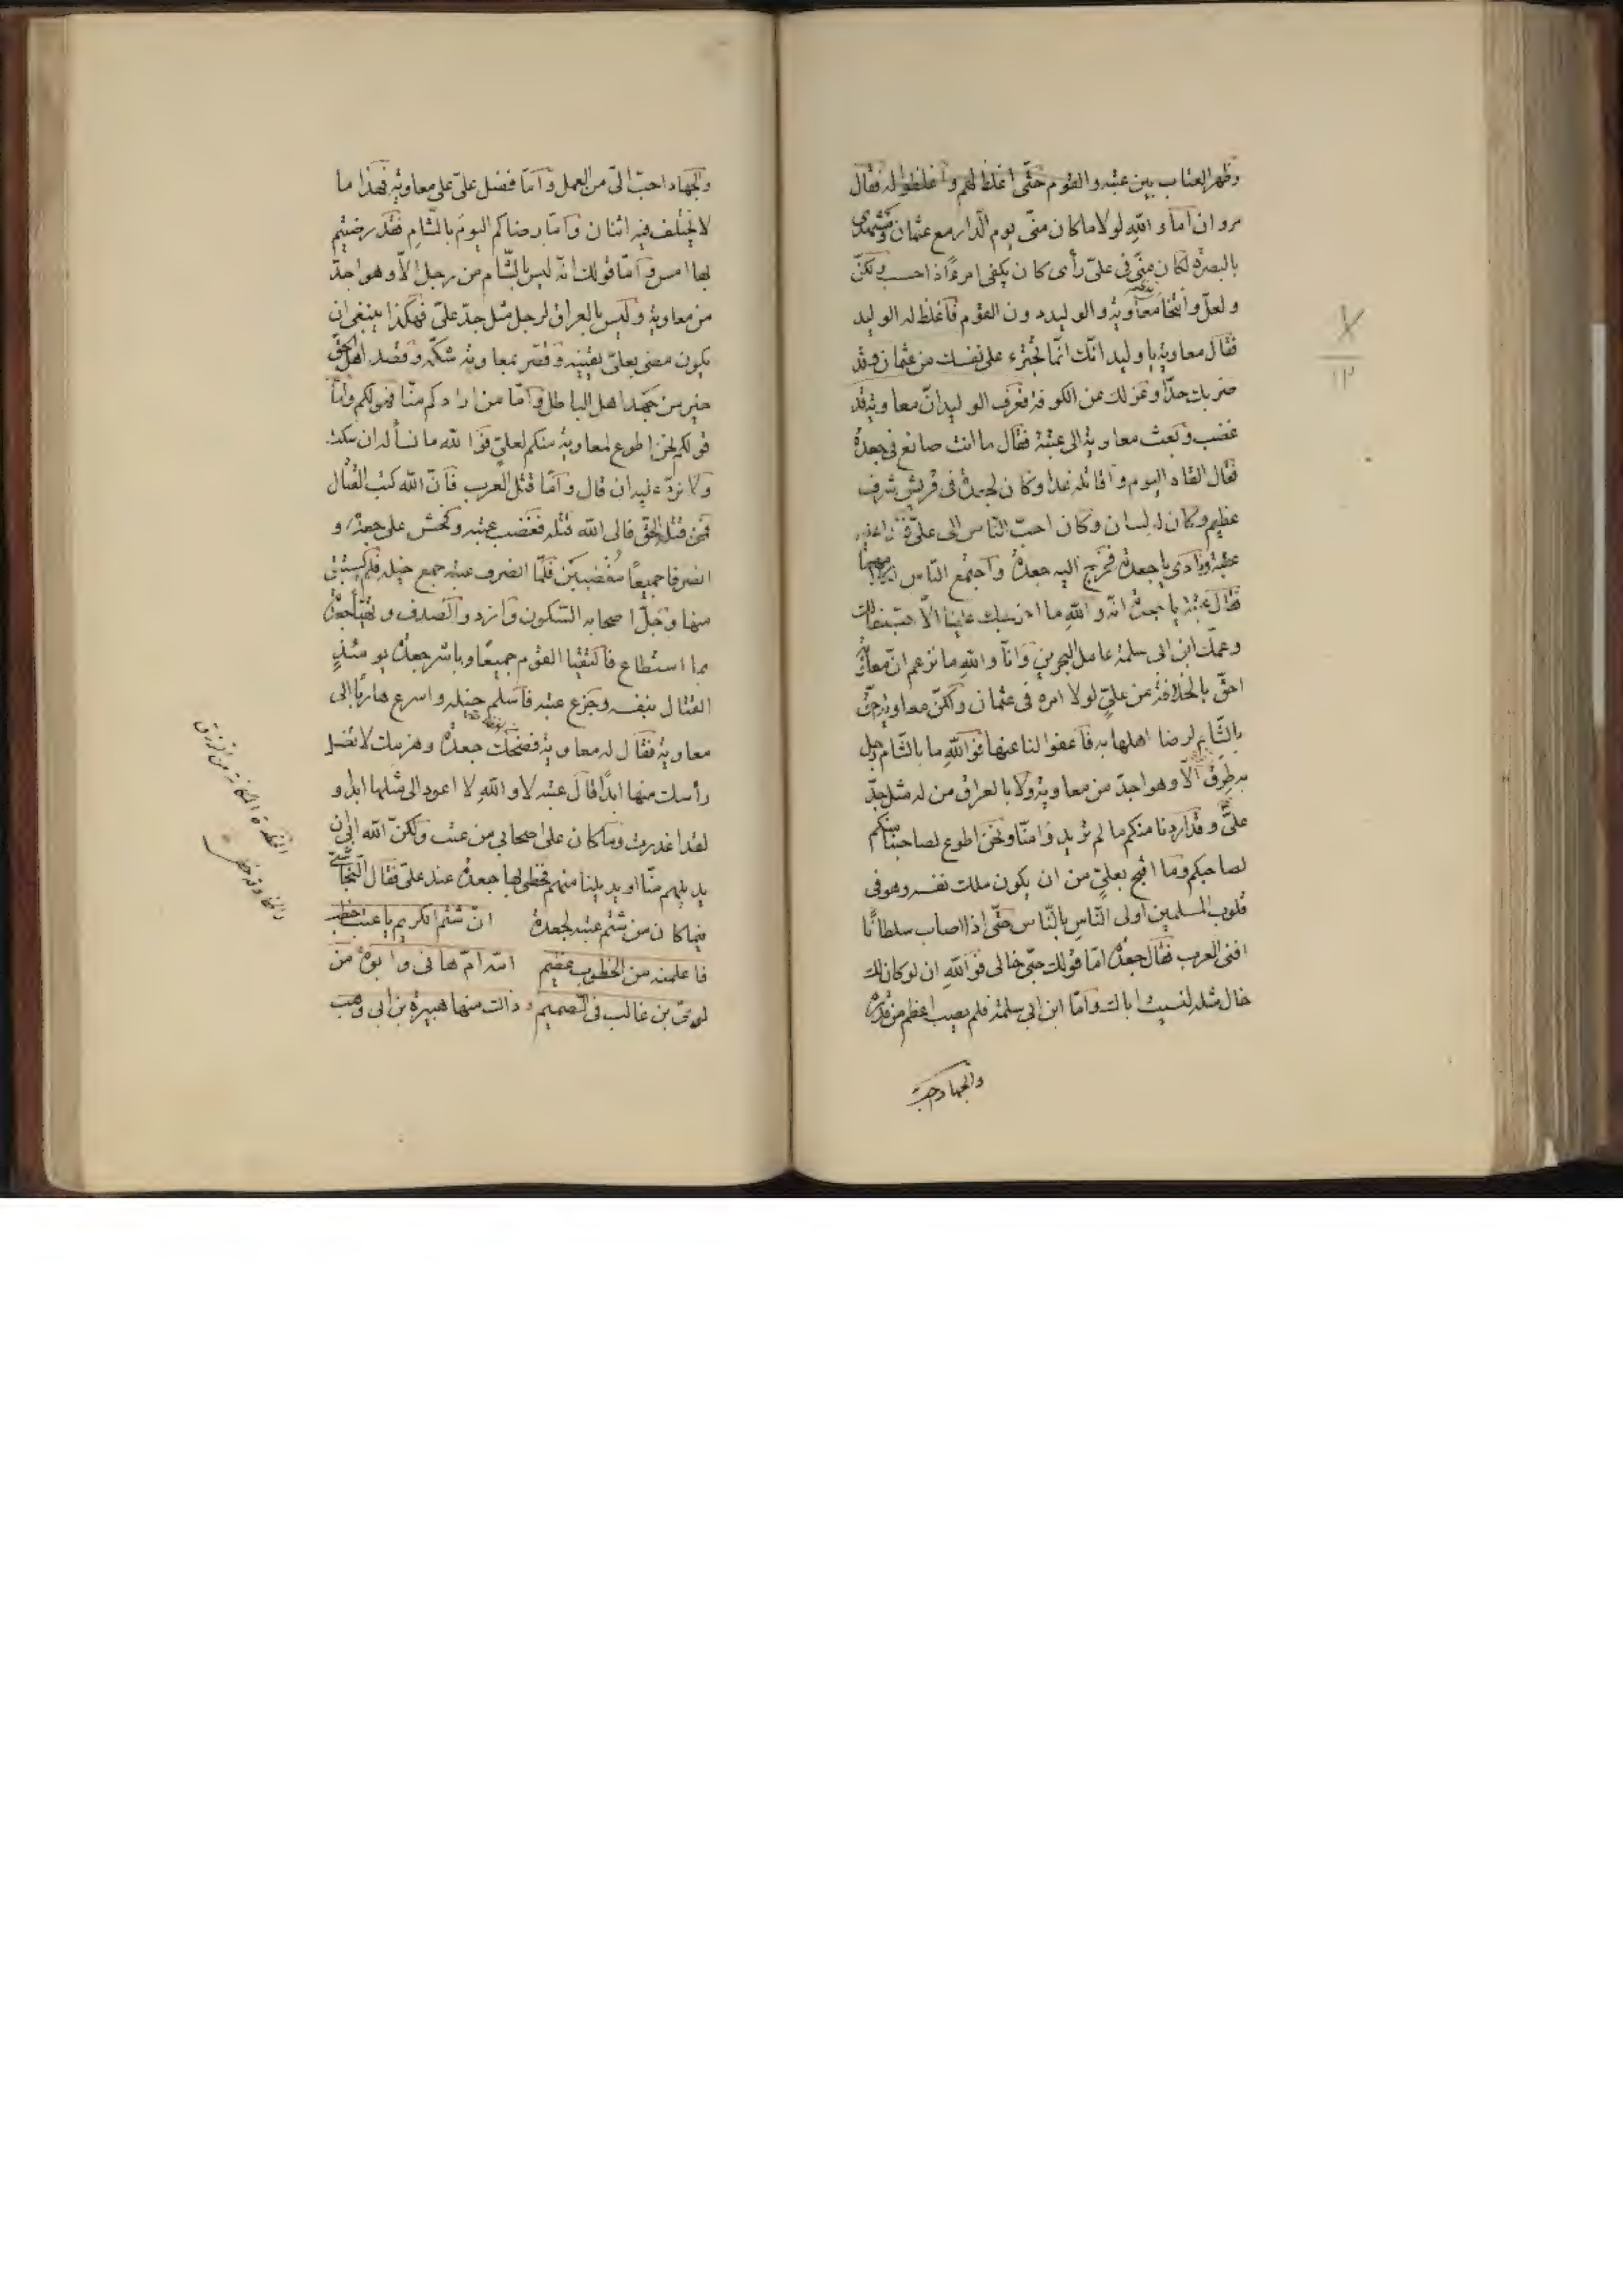 وظهر العتاب بين عتبه والقوم حتّى اغلظ لهم واغلظوا له فقال
مروان اما والله لولا ما كان منّى يوم الدّار مع عثمان ومشهدى
بالبصرة لكان منّى فى علىّ رأى كان يكفى امرءًا ذا حسب ولكنّ
ولعلّ وانتخا معاوية والوليد دون القوم فاغلظ له الوليد
فقال معاوية يا وليد انّك انّما تجترء على نفسك من عثمان وقد
ضربك حدّا وعزلك عن الكوفة فعرف الوليد انّ معاوية قد
غضب وبعث معاوية الى عتبة فقال ما انت صانع فى جعدة
فقال القاه اليوم واقاتله غدا وكان لجعدة فى قريش شرف
عظيم وكان له لسان وكان احبّ النّاس الى علىّ
عتبة ونادى يا جعدة فخرج اليه جعدة واجتمع النّاس
فقال عتبة يا جعدة انّه والله ما اخرجك علينا الّا حبّك خالك
وعمّك ابن ابى سلمة عامل البحرين وانّا والله ما نزعم انّ معاوية
احقّ بالخلافة من علىٍّ لولا امره فى عثمان ولكنّ معاوية احقّ
بالشّام لرضا اهلها به فاعفوا لنا عنها فو الله ما بالشّام رجل
به طرق الّا وهو اجدّ من معاوية ولا بالعراق من له مثل جدّ
علىّ وقد اردنا منكم ما لم تريدوا منّا ونحن اطوع لصاحبنا منكم
لصاحبكم وما اقبح بعلىّ من ان يكون ملك نفسه وهو فى
قلوب المسلمين اولى النّاس بالنّاس حتّى اذا اصاب سلطانًا
افنى العرب فقال جعدة امّا قولك حبّى خالى فو الله ان لو كان لك
خال مثله لنسيت اباك وامّا ابن ابى سلمة فلم يصب اعظم من قدره
والجهاد احبّ
والجهاد احبّ الىّ من العمل وامّا فضل علىّ على معاوية فهذا ما
لا يختلف فيه اثنان وامّا رضاكم اليوم بالشّام فقد رضيتم
بها امس وامّا قولك انّه ليس بالشّام من رجل الّا وهو اجدّ
من معاوية وليس بالعراق لرجل مثل جدّ علىّ فهكذا ينبغى ان
يكون مضى بعلىّ يقينه وقصّر بمعاوية شكّه وقصد اهل الحقّ
خير من جهد اهل الباطل وامّا من ارادكم منّا فمولكم وامّا
قولكم نحن اطوع لمعاوية منكم لعلىٍّ فو الله ما نسأله ان سكت
ولا نردّ عليه ان قال وامّا قتل العرب فانّ الله كتب القتال
فمن قتله الحقّ فالى الله قتله فغضب عتبه وفحش على جعدة و
انصرفا جميعًا مغضبين فلمّا انصرف عتبه جمع خيله فلم يستبق
منها وجلّ اصحابه السّكون وازد والصّدف وتهيّأ جعدة
بما استطاع فالتقيا القوم جميعًا وباشر جعدة يومئذٍ
القتال بنفسه وجزع عتبه فاسلم خيله واسرع هاربًا الى
معاوية فقال له معاوية فضحك جعدة وهزمك لا تغسل
رأسك منها ابدًا قال عتبه لا والله لا اعود الى مثلها ابدا و
لقد اعذرت وما كان على اصحابى من عتب ولكنّ الله ابى ان
يديلهم منّا او يديلنا منهم فحظى بها جعدة عند علىّ فقال النّجاشى
فيما كان من شتم عتبه لجعدة انّ شتم الكريم يا عتب خطب
فاعلمنه من الخطوب عظيم امّه امّ هانى وابوه من
لوىّ بن غالب فى الصّميم ذاك منها هبيرة بن ابى وهب